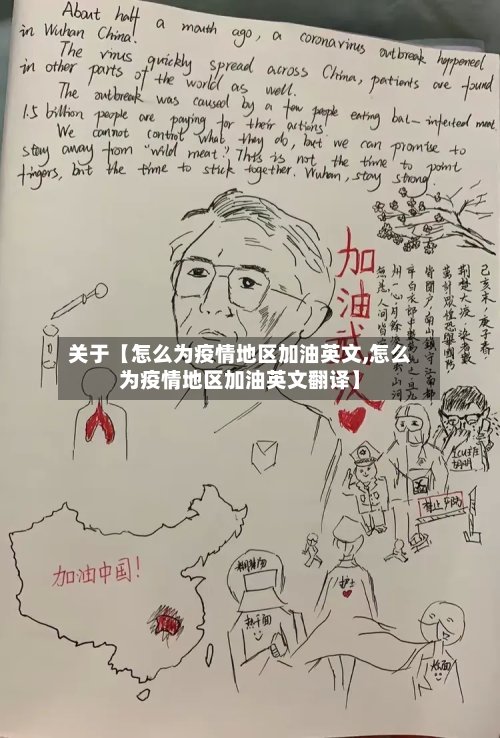 About half a month ago, a coronavirus outbreak happened
in Wuhan China.
The virus quickly spread across China, patients are found
in other parts of the world as well.
The outbreak was caused by a few people eating bat-infected meat
1.5 billion people are paying for their actions.
We cannot control what they do, but we can promise to
stay away from "wild meat". This is not the time to point
fingers, but the time to stick together. Wuhan, stay strong.
加油武汉
己亥末,庚子春,
荆楚大疫,染者数
关于【怎么为疫情地区加油英文,怎么
为疫情地区加油英文翻译】
禁止
加油中国!
热干面
护士